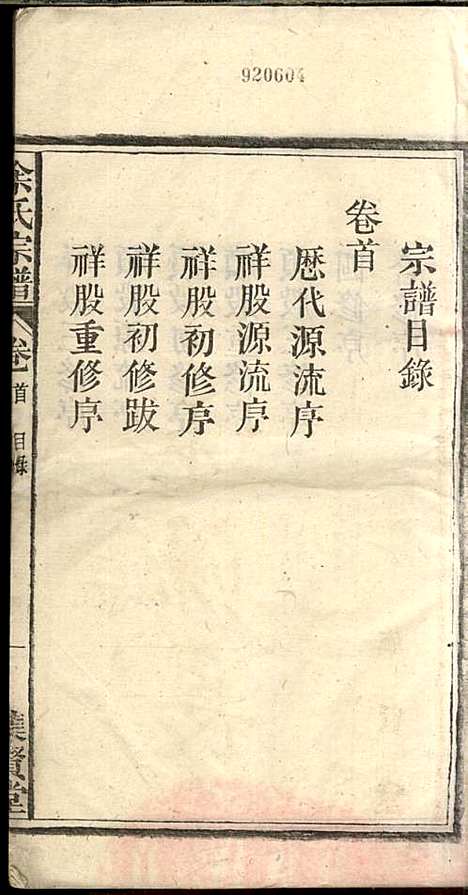 920604
宗譜目錄
卷首
歷代源流序
祥股源流序
祥股初修序
祥股初修跋
祥股重修序
余氏宗譜
卷首 目錄
一
集賢堂